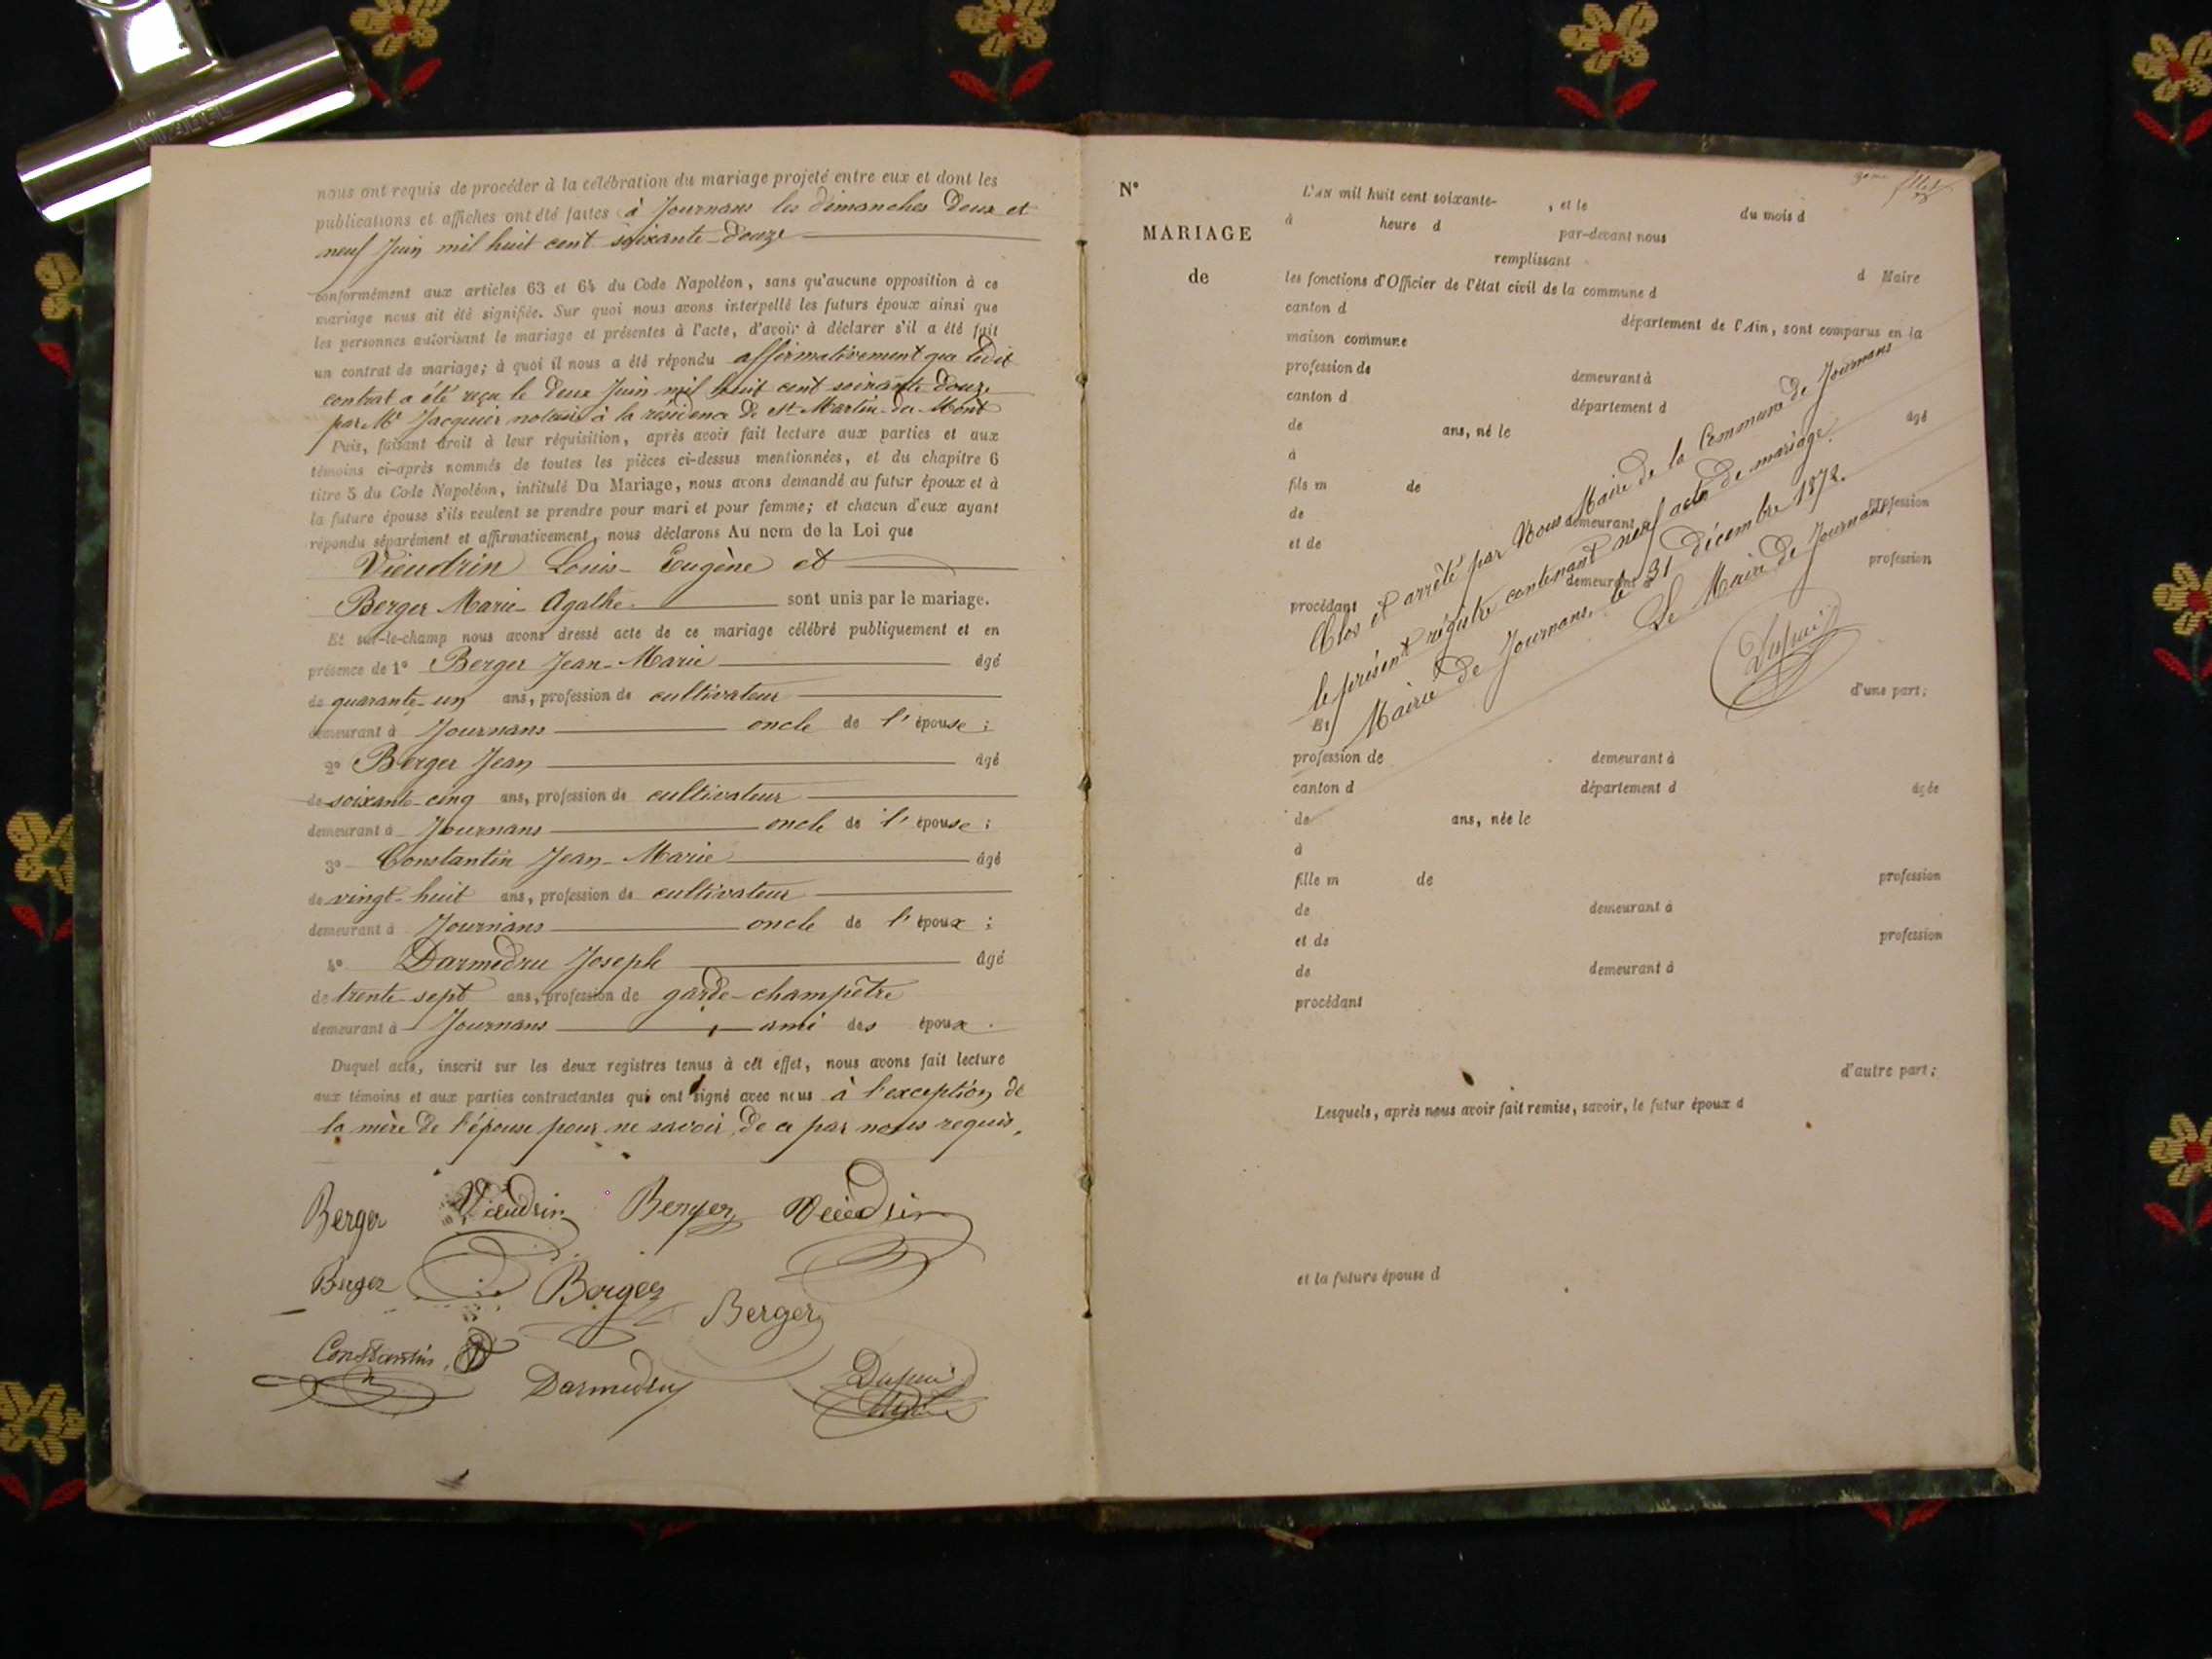 nous ont requis de procéder à la célébration du mariage projeté entre eux et dont les
publications et affiches ont été faites à Journans les dimanches Deux et
neuf Juin mil huit cent soixante-douze
conformément aux articles 63 et 64 du Code Napoléon, sans qu'aucune opposition à ce
mariage nous ait été signifiée. Sur quoi nous avons interpellé les futurs époux ainsi que
les personnes autorisant le mariage et présentes à l'acte, d'avoir à déclarer s'il a été fait
un contrat de mariage; à quoi il nous a été répondu affirmativement que ledit
contrat a été reçu le deux Juin mil huit cent soixante-douze
par Me Jacquier notaire à la résidence de St Martin-du-Mont
Puis, faisant droit à leur réquisition, après avoir fait lecture aux parties et aux
témoins ci-après nommés de toutes les pièces ci-dessus mentionnées, et du chapitre 6
titre 5 du Code Napoléon, intitulé Du Mariage, nous avons demandé au futur époux et à
la future épouse s'ils veulent se prendre pour mari et pour femme; et chacun d'eux ayant
répondu séparément et affirmativement, nous déclarons Au nom de la Loi que
Vieudrin Louis-Eugène et
Berger Marie-Agathe sont unis par le mariage.
Et sur-le-champ nous avons dressé acte de ce mariage célébré publiquement et en
présence de 1° Berger Jean-Marie âgé
de quarante-un ans, profession de cultivateur
demeurant à Journans oncle de l'épouse;
2° Berger Jean âgé
de soixante-cinq ans, profession de cultivateur
demeurant à Journans oncle de l'épouse;
3° Constantin Jean-Marie âgé
de vingt-huit ans, profession de cultivateur
demeurant à Journans oncle de l'époux;
4° Darmedru Joseph âgé
de trente-sept ans, profession de garde-champêtre
demeurant à Journans ami des époux.
Duquel acte, inscrit sur les deux registres tenus à cet effet, nous avons fait lecture
aux témoins et aux parties contractantes qui ont signé avec nous à l'exception de
la mère de l'épouse pour ne savoir, de ce par nous requis.
Berger Vieudrin Berger Vieudrin
Berger Berger
Berger
Constantin
Darmedru Dupuis
N°
MARIAGE
de
L'AN mil huit cent soixante- , et le du mois d
à heure d par-devant nous
remplissant
les fonctions d'Officier de l'état civil de la commune d d Maire
canton d département de l'Ain, sont comparus en la
maison commune
profession de demeurant à
canton d département d âgé
de ans, né le
à
fils m de profession
de demeurant
et de profession
demeurant à
procédant
Clos et arrêté par Nous Maire de la Commune de Journans
le présent registre contenant neuf actes de mariage.
Mairie de Journans, le 31 décembre 1872.
Le Maire de Journans,
Dupuis
d'une part;
Et
profession de demeurant à
canton d département d âgée
de ans, née le
à
fille m de profession
de demeurant à
et de profession
de demeurant à
procédant
d'autre part;
Lesquels, après nous avoir fait remise, savoir, le futur époux d
et la future épouse d